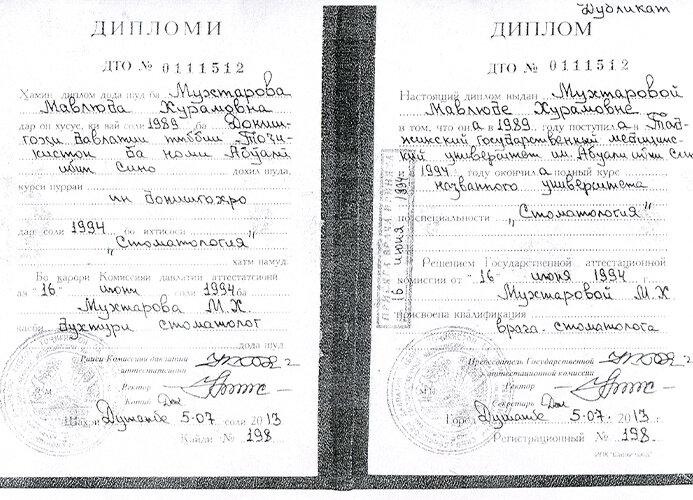 ДИПЛОМИ
ДТО № 0111512
Хамин диплом дода шуд ба Мухтарова
Мавлюда Хурамовна
дар он хусус, ки вай соли 1989 ба Дониш-
гохи давлатии тиббии Точи-
кистон ба номи Абуали
ибни Сино дохил шуда,
курси пурраи
ин донишгохро
дар соли 1994 бо ихтисоси
"Стоматология"
хатм намуд.
Бо карори Комиссияи давлатии аттестатсиони
аз "16" июни соли 1994 ба
Мухтарова М.Х.
касби духтури стоматолог
дода шуд
Раиси Комиссияи давлатии
аттестатсиони
Ректор
Котиб
Шахри Душанбе 5-07. соли 2013
Кайди № 198
Дубликат
ДИПЛОМ
ДТО № 0111512
Настоящий диплом выдан Мухтаровой
Мавлюде Хурамовне
в том, что она в 1989 году поступила в Тад-
жикский государственный медицин-
ский университет им. Абуали ибни Сино
в 1994 году окончила полный курс
названного университета
по специальности „Стоматология"
Решением Государственной аттестационной
комиссии от "16" июня 1994 г
Мухтаровой М.Х.
присвоена квалификация
врача-стоматолога
Председатель Государственной
аттестационной комиссии
Ректор
Секретарь
Город Душанбе 5-07. 2013
Регистрационный № 198
ВРАЧА ПРИНЯТА
16 июня 1994